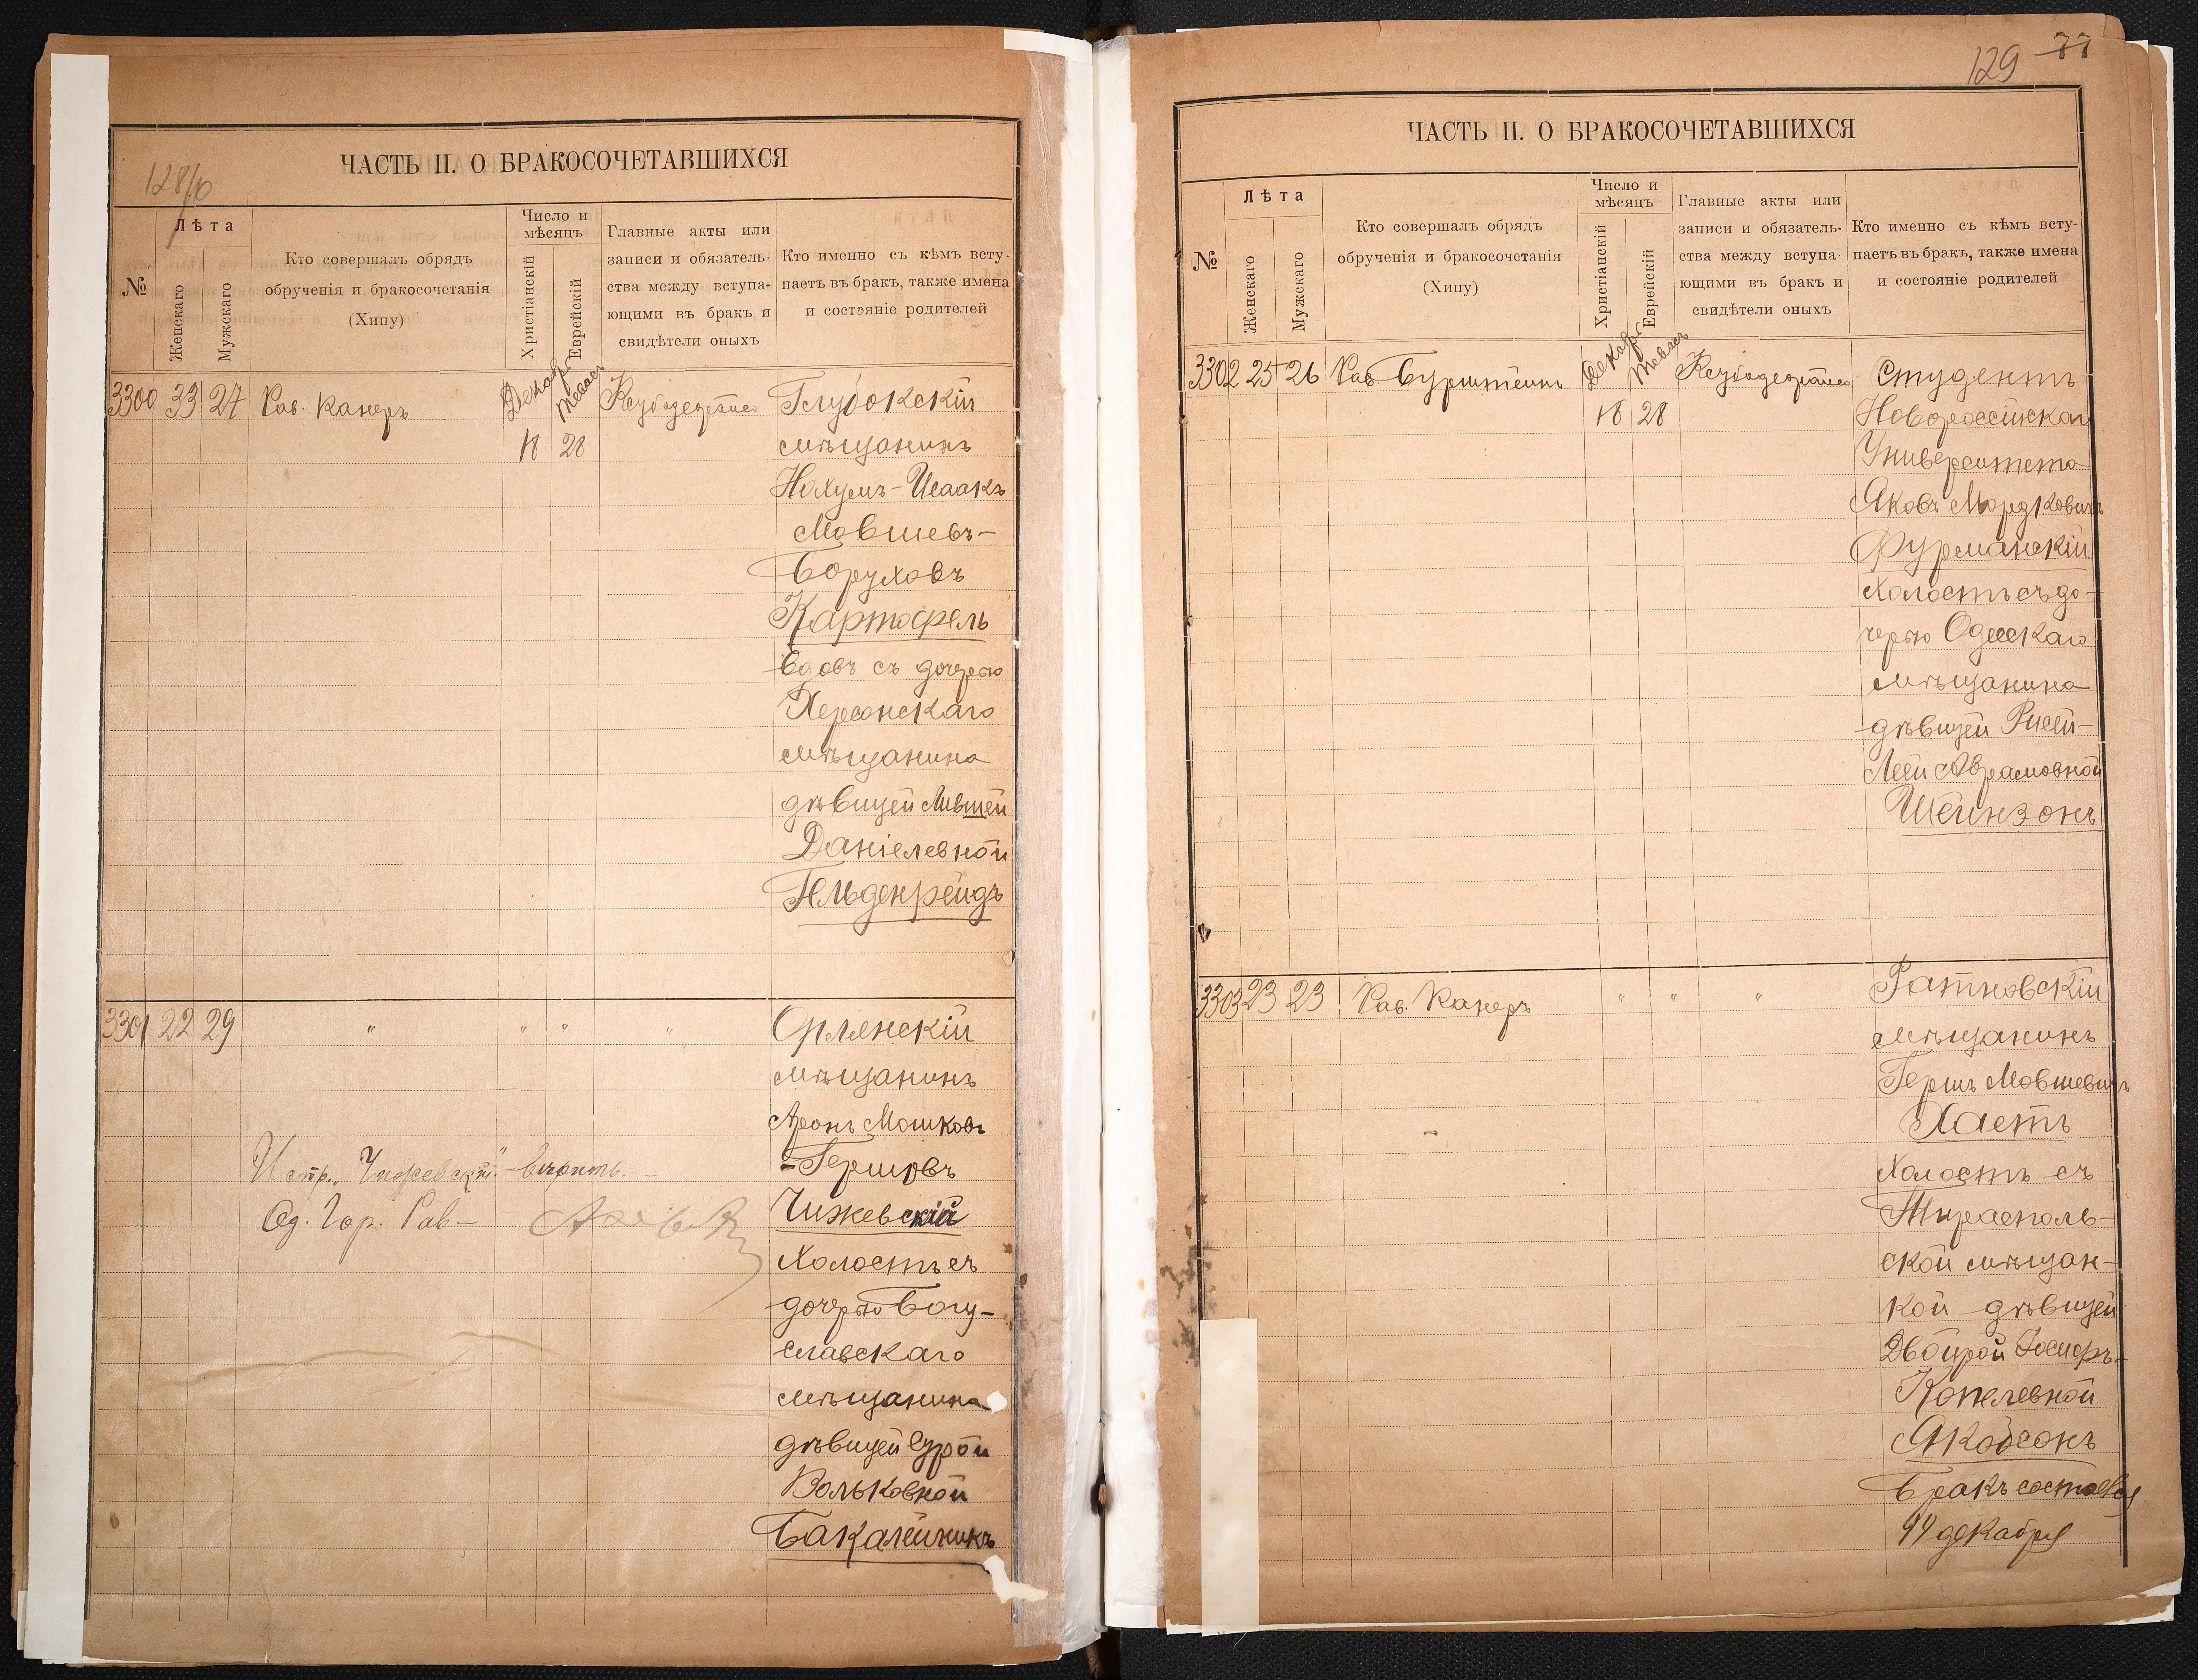 128/10
ЧАСТЬ II. О БРАКОСОЧЕТАВШИХСЯ
№
Лѣта
Женскаго
Мужскаго
Кто совершалъ обрядъ
обрученія и бракосочетанія
(Хипу)
Число и
мѣсяцъ
Христіанскій
Еврейскій
Главные акты или
записи и обязатель-
ства между вступа-
ющими въ бракъ и
свидѣтели оныхъ
Кто именно съ кѣмъ всту-
паетъ въ бракъ, также имена
и состояніе родителей
3300 33 27 Рав. Канеръ
Декабр
Тевасъ
18 28
Глубокскій
мѣщанинъ
Нахумъ-Исаакъ
Мовшевъ-
Боруховъ
Картофель
вдовъ съ дочерью
Херсонскаго
мѣщанина
дѣвицей Лившей
Даніелевной
Гельденрейдъ
3301 22 29 " " " "
Орлянскій
мѣщанинъ
Аронъ Мошковъ
-Гершовъ
Чижевскій
холостъ съ
дочерью Богу-
славскаго
мѣщанина
дѣвицей Сурой
Вольковной
Бакалейчикъ
Испр. „Чижевскій" вѣрить. —
Од. Гор. Рав —
129 77
ЧАСТЬ II. О БРАКОСОЧЕТАВШИХСЯ
№
Лѣта
Женскаго
Мужскаго
Кто совершалъ обрядъ
обрученія и бракосочетанія
(Хипу)
Число и
мѣсяцъ
Христіанскій
Еврейскій
Главные акты или
записи и обязатель-
ства между вступа-
ющими въ бракъ и
свидѣтели оныхъ
Кто именно съ кѣмъ всту-
паетъ въ бракъ, также имена
и состояніе родителей
3302 25 26 Рав Бурштейнъ
Декабр
Тевасъ
18 28
Студентъ
Новороссійскаго
Университета
Яковъ Мордковичъ
Фурманскій
холостъ съ до-
черью Одесскаго
мѣщанина
дѣвицей Рисей-
Леей Аврамовной
Шейнзонъ
3303 23 23 Рав. Канеръ " " "
Ратновскій
мѣщанинъ
Гершъ Мовшевичъ
Хаетъ
холостъ съ
Тирасполь-
ской мѣщан-
кой дѣвицей
Двойрой Госифъ-
Копелевной
Якобсонъ
Бракъ состоялся
19 декабря